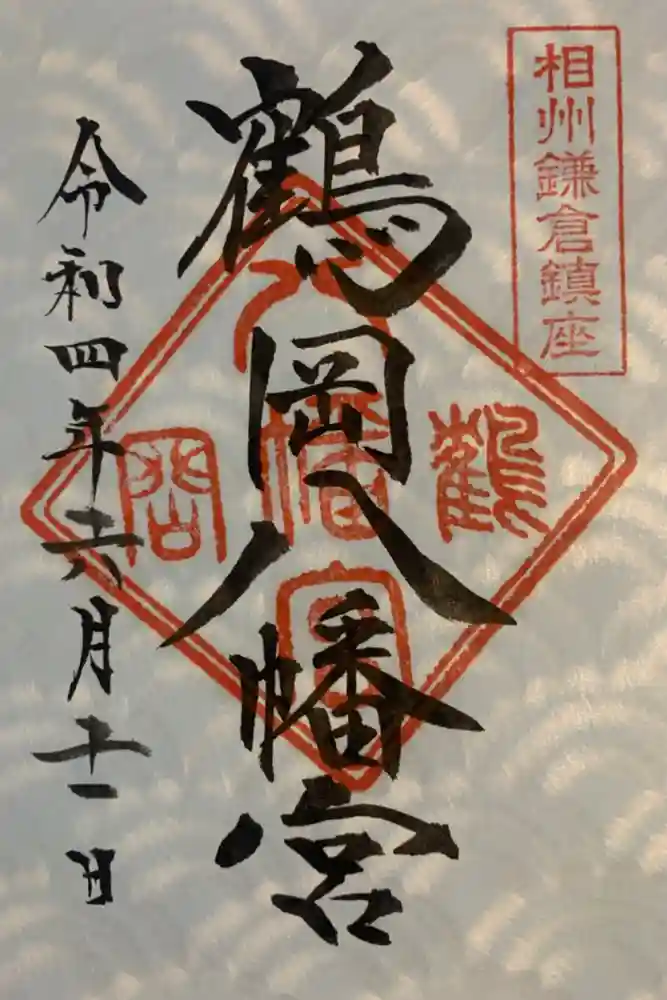 相州鎌倉鎮座
鶴岡八幡宮
鶴
八幡宮
岡
令和四年六月十一日